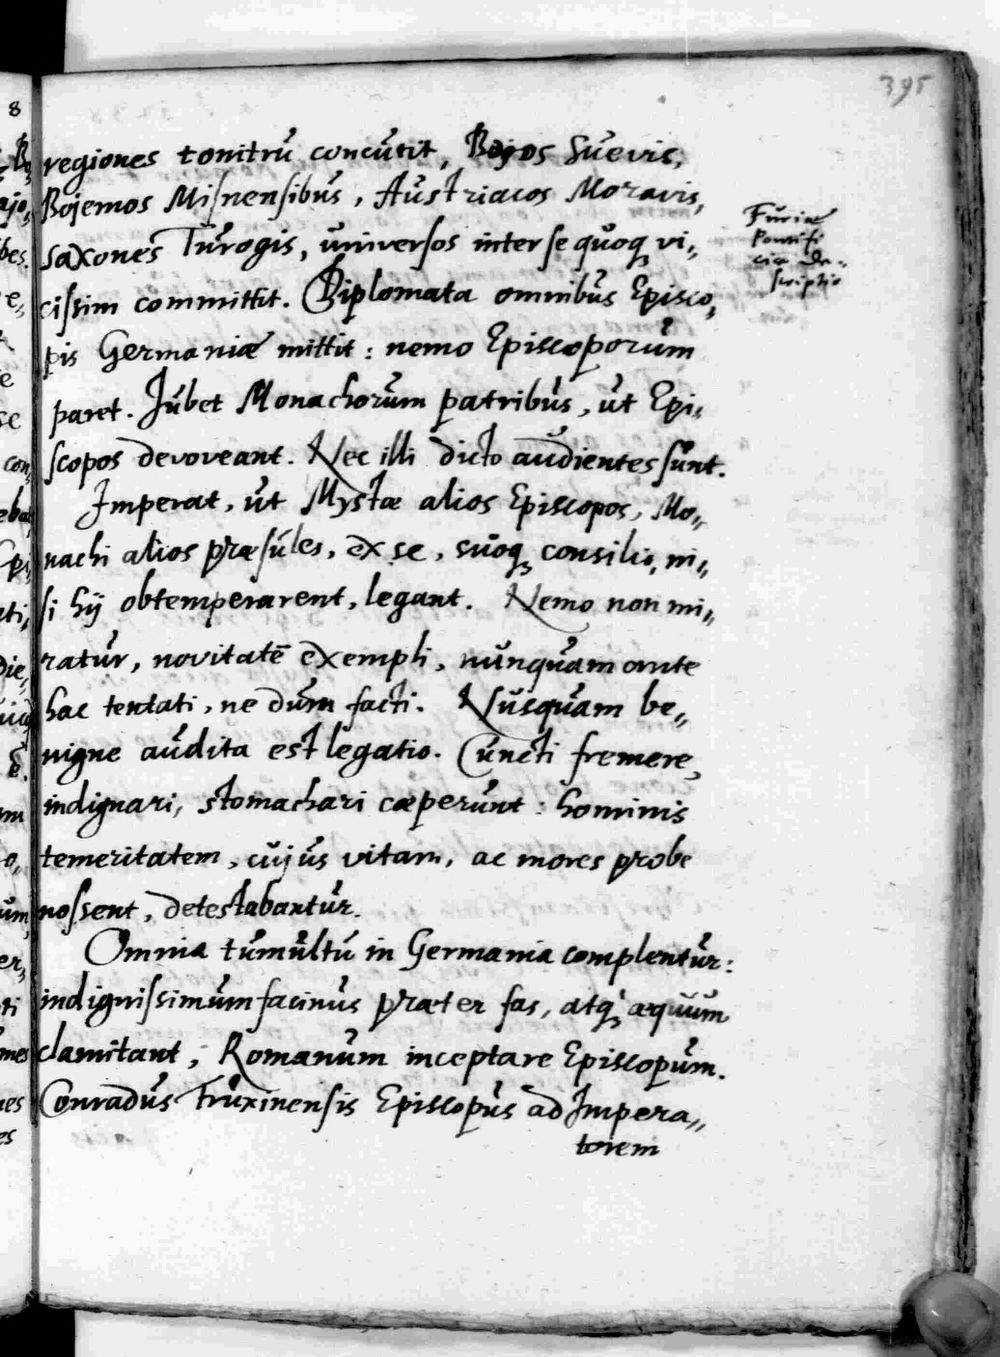 395
regiones tonitrŭ concŭtit, Bojos Sŭevis,
Bojemos Misnensibŭs, Aŭstriacos Moravis,
Saxones Tŭrogis, universos inter se quoqꝫ vi„
cissim committit. Diplomata omnibŭs Episco„
pis Germaniæ mittit: nemo Episcoporŭm
paret. Jŭbet Monachorŭm patribŭs, ŭt Epi„
scopos devoveant. Nec illi dicto aŭdientes sŭnt.
Imperat, ŭt Mystæ alios Episcopos, Mo„
nachi alios præsŭles, ex se, sŭoqꝫ consilio, ni„
si hij obtemperarent, legant. Nemo non mi„
ratŭr, novitatē exempli, nŭnqŭam ante
hac tentati, ne dŭm facti. Nŭsqŭam be„
nigne aŭdita est legatio. Cŭncti fremere,
indignari, stomachari cæperŭnt: hominis
temeritatem, cŭjŭs vitam, ac mores probe
nossent, detestabantŭr.
Omnia tŭmŭltŭ in Germania complentŭr:
indignissimŭm facinŭs præter fas, atqꝫ æqŭum
clamitant, Romanŭm inceptare Episcopŭm.
Conradŭs Frŭxinensis Episcopŭs ad Impera„
torem
Fŭriæ
Pontifi
ciæ De„
scriptio